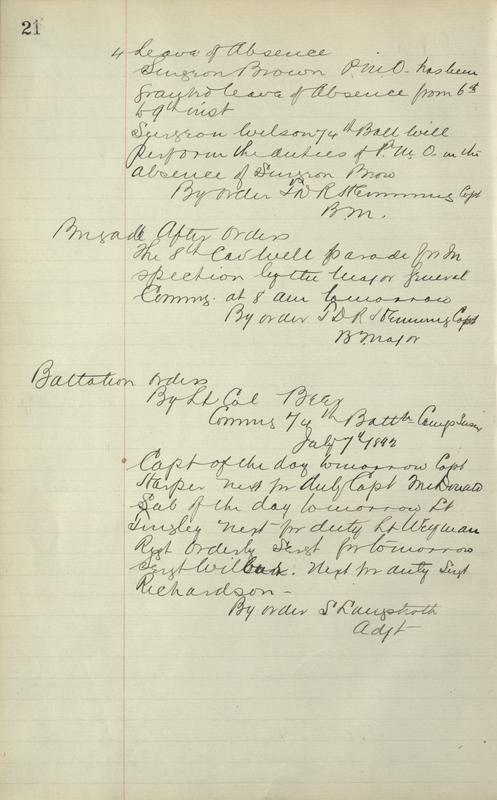 21
4 Leave of Absence
Surgeon Brown P.M.O. has been
granted leave of Absence from 6th
to 9th inst
Surgeon Wilson 74th Batt will
perform the duties of P.M.O. in the
absence of Surgeon Brow
By order T D R Hemming Capt
B.M.
Brigade After Orders
The 8th Cav will parade for In
spection by the Major General
Commg. at 8 am tomorrow
By order T D R Hemming Capt
B Major
Battalion Orders
By Lt Col Beer
Commg 74th Battn Camp Sussex
July 7th 1892
Capt of the day tomorrow Capt
Harper next for duty Capt McDonald
Sub of the day tomorrow Lt
Langley next for duty Lt Weyman
Regt Orderly Sergt for tomorrow
Sergt Wilbur. Next for duty Sergt
Richardson -
By order S Langstroth
Adjt